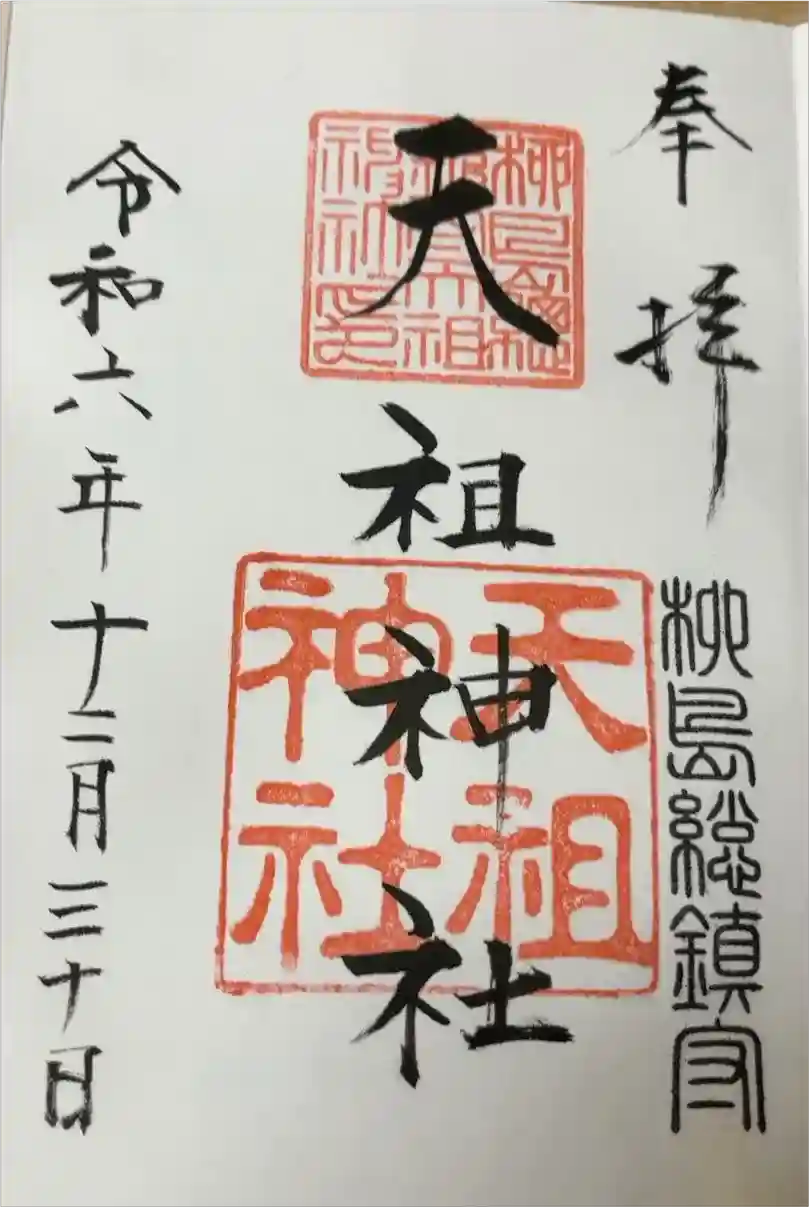 奉拝
柳島総鎮守
天祖神社
柳島総鎮守天祖神社印
天祖神社
令和六年十二月三十日